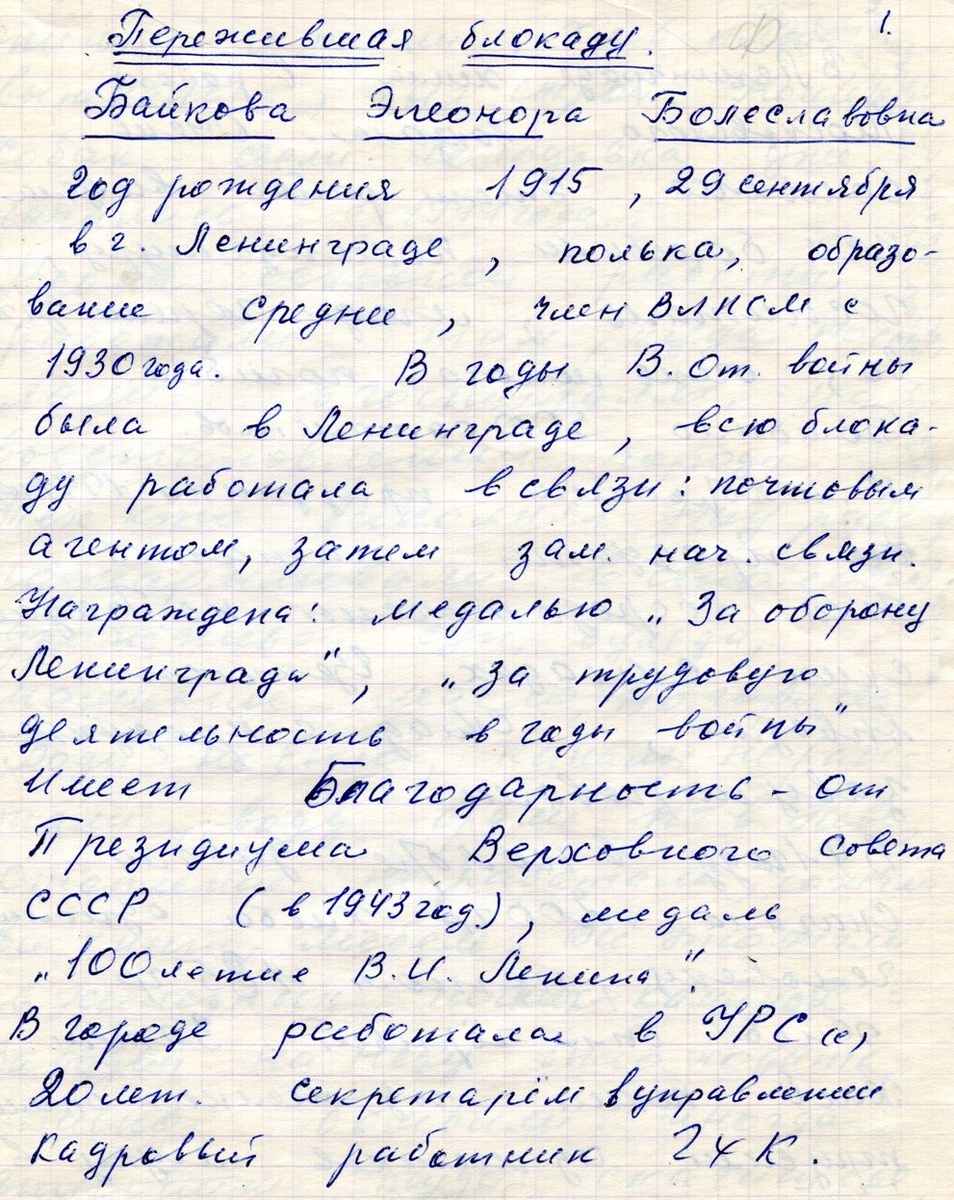 1.
Пережившая блокаду.
Байкова Элеонора Болеславовна
год рождения 1915, 29 сентября
в г. Ленинграде, полька, образо-
вание средние, член ВЛКСМ с
1930 года. В годы В. От. войны
была в Ленинграде, всю блока-
ду работала в связи: почтовым
агентом, затем зам. нач. связи.
Награждена: медалью „За оборону
Ленинграда", „за трудовую
деятельность в годы войны"
Имеет Благодарность - от
Президиума Верховного Совета
СССР (в 1943 год.), медаль
„100 летие В.И. Ленина".
В городе работала в УРС(е)
20 лет. секретарём в управлении
Кадровый работник ГХК.